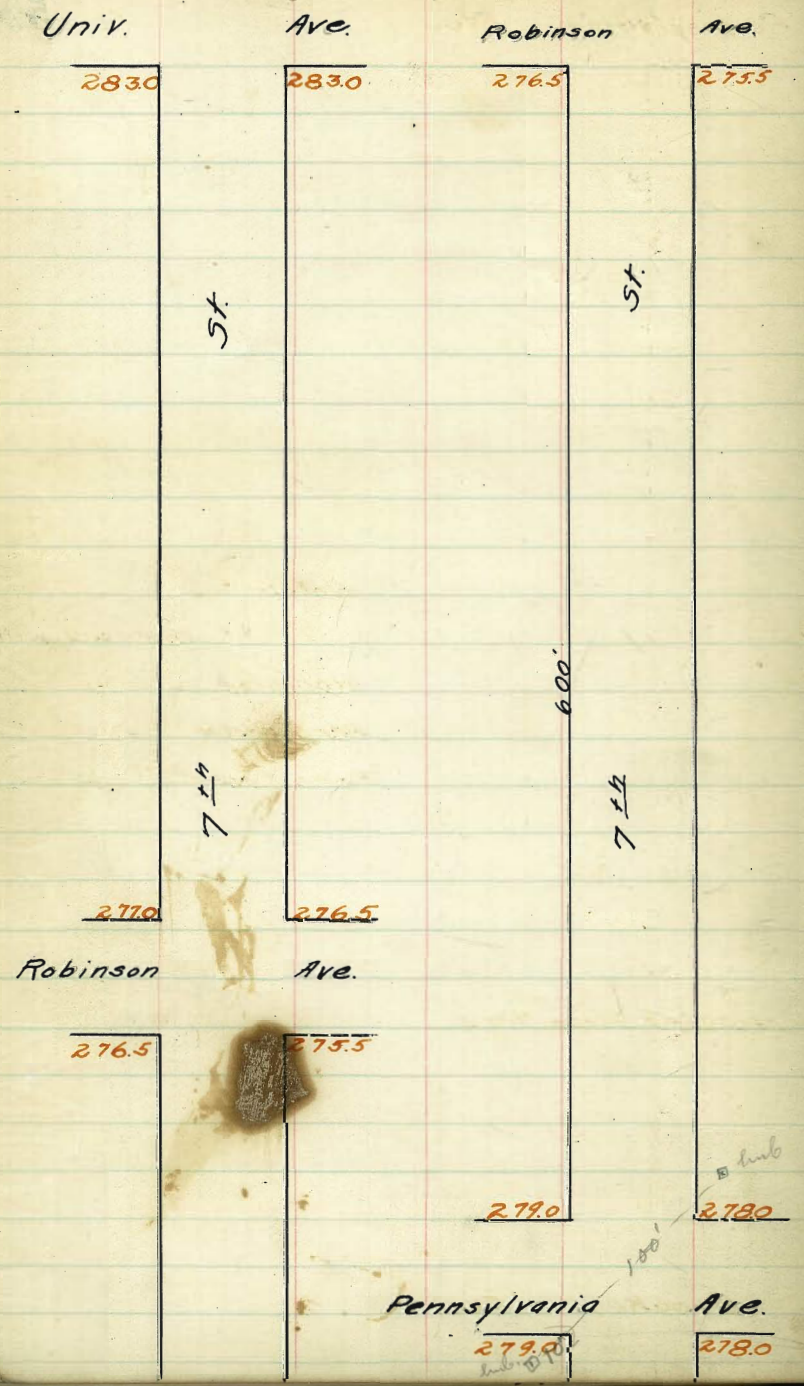 Univ. Ave.
283.0 283.0
St.
7th
277.0 276.5
Robinson Ave.
276.5 275.5
Robinson Ave.
276.5 275.5
St.
600'
7th
hub
279.0 278.0
100'
Pennsylvania Ave.
279.0 278.0
hub